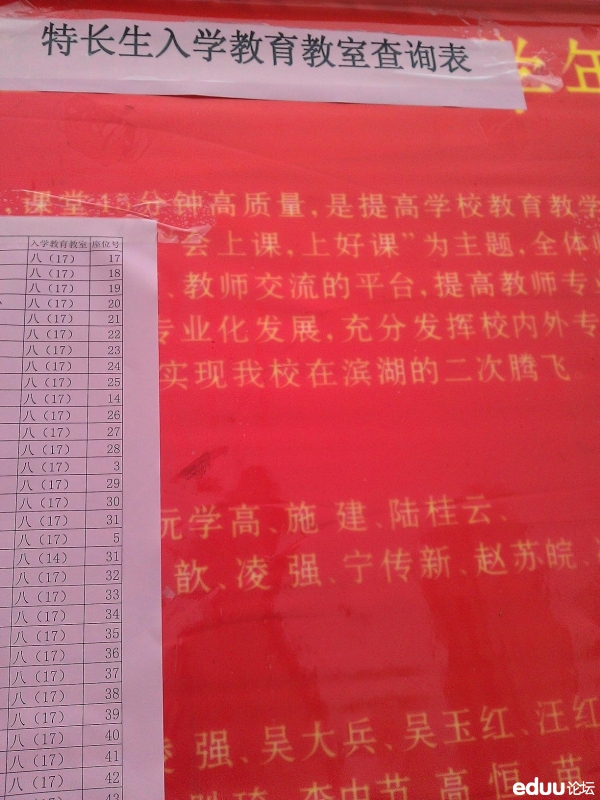 特长生入学教育教室查询表
学年
,课堂 分钟高质量,是提高学校教育教学
会上课,上好课”为主题,全体
、教师交流的平台,提高教师专业
专业化发展,充分发挥校内外专
实现我校在滨湖的二次腾飞。
入学教育教室 座位号
八（17） 17
八（17） 18
八（17） 19
八（17） 20
八（17） 21
八（17） 22
八（17） 23
八（17） 24
八（17） 25
八（17） 14
八（17） 26
八（17） 27
八（17） 28
八（17） 3
八（17） 29
八（17） 30
八（17） 31
八（17） 5
八（14） 31
八（17） 32
八（17） 33
八（17） 34
八（17） 35
八（17） 36
八（17） 37
八（17） 38
八（17） 39
八（17） 40
八（17） 41
八（17） 42
43
元学高、施 建、陆桂云、
歆、凌 强、宁传新、赵苏皖、
凌 强、吴大兵、吴玉红、汪红
李中节、高 恒、苗
eduu论坛